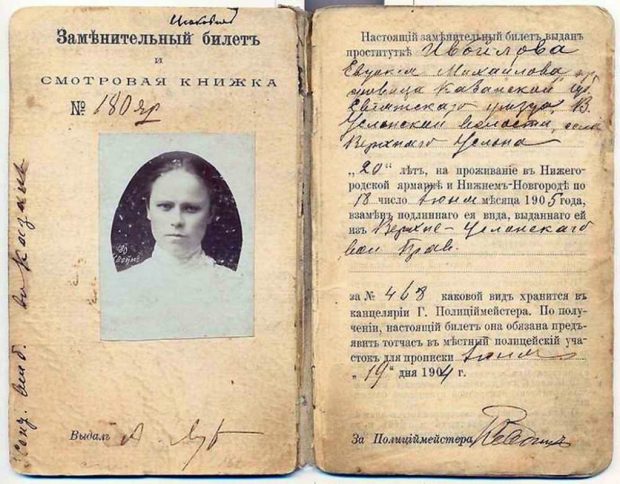 Замѣнительный билетъ
и
СМОТРОВАЯ КНИЖКА
№ 180 яр
Выдалъ А.
Настоящій замѣнительный билетъ выданъ
проституткѣ Ивойлова
Евдокія Михайлова кр
дѣвица Казанской губ
Свіяжскаго уѣзда, В.
Услонской волости, села
Верхняго Услона
„20" лѣтъ, на проживаніе въ Нижего-
родской ярмаркѣ и Нижнемъ-Новгородѣ по
18 число Іюня мѣсяца 1905 года,
взамѣнъ подлиннаго ея вида, выданнаго ей
изъ Верхне-Услонскаго
вол Прав.
за № 468 каковой видъ хранится въ
канцеляріи Г. Полиціймейстера. По полу-
ченіи, настоящій билетъ она обязана предъ-
явить тотчасъ въ мѣстный полицейскій уча-
стокъ для прописки Іюня
„19" дня 1904 г.
За Полиціймейстера